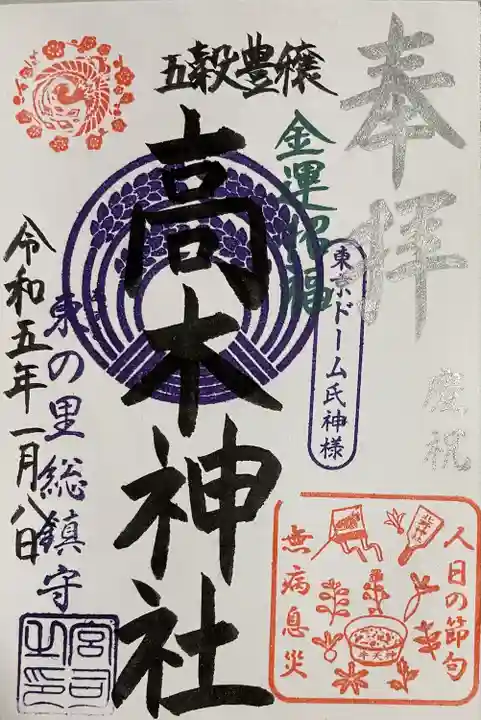 奉拝
慶祝
五穀豊穣
金運招福
東京ドーム氏神様
高木神社
東の里総鎮守
令和五年一月八日
宮司之印
人日の節句
無病息災
牛天神